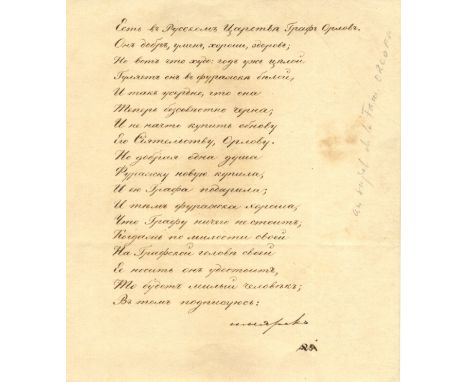 Есть въ Русскомъ Царствѣ Графъ Орловъ.
Онъ добръ, уменъ, хорошъ, здоровъ;
Но вотъ что худо: годъ ужъ цѣлой
Гуляетъ онъ въ фуражкѣ бѣлой,
И такъ усердно, что она
Теперь безсовѣстно черна;
И не начто купить обнову
Его Сіятельству, Орлову.
Но добрая одна душа
Фуражку новую купила,
И ею Графа подарила;
И тѣмъ фуражка хороша,
Что Графу ничего не стоитъ,
Когдажъ по милости своей
На Графской головѣ своей
Ее носить онъ удостоитъ,
То будетъ милый человѣкъ;
Въ томъ подписуюсь:
au sujet de la Fam ORLOFF